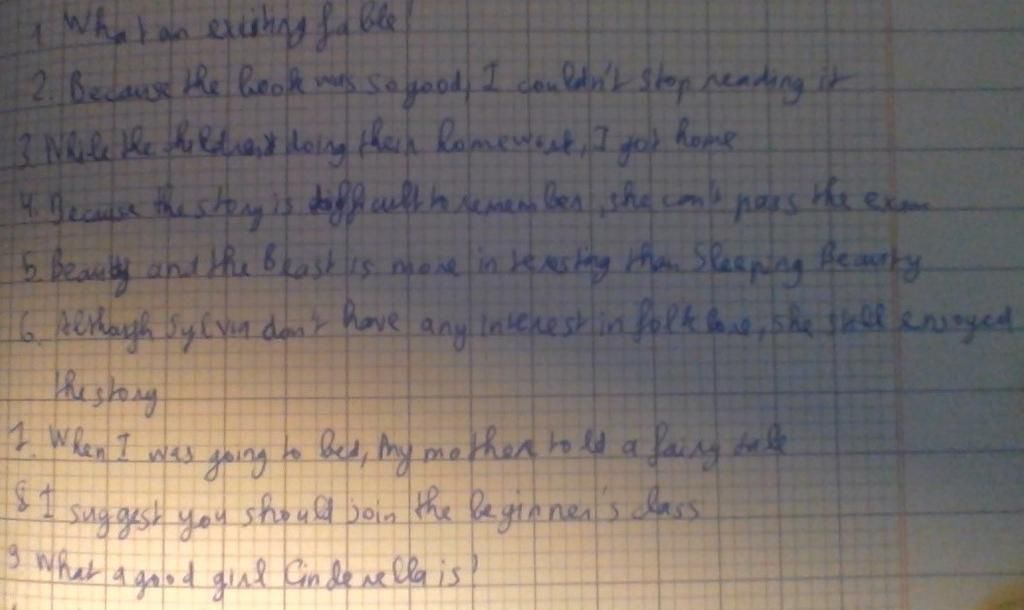 1 What an exciting fable!
2. Because the book was so good, I couldn't stop reading it
3 While the children doing their homework, I got home
4. Because the story is difficult to remember, she can't pass the exam
5. Beauty and the Beast is more interesting than Sleeping Beauty
6. Although Sylvia don't have any interest in folk lore, she still enjoyed
the story
7. When I was going to bed, my mother told a fairy tale
8 I suggest you should join the beginner's class
9 What a good girl Cinderella is!